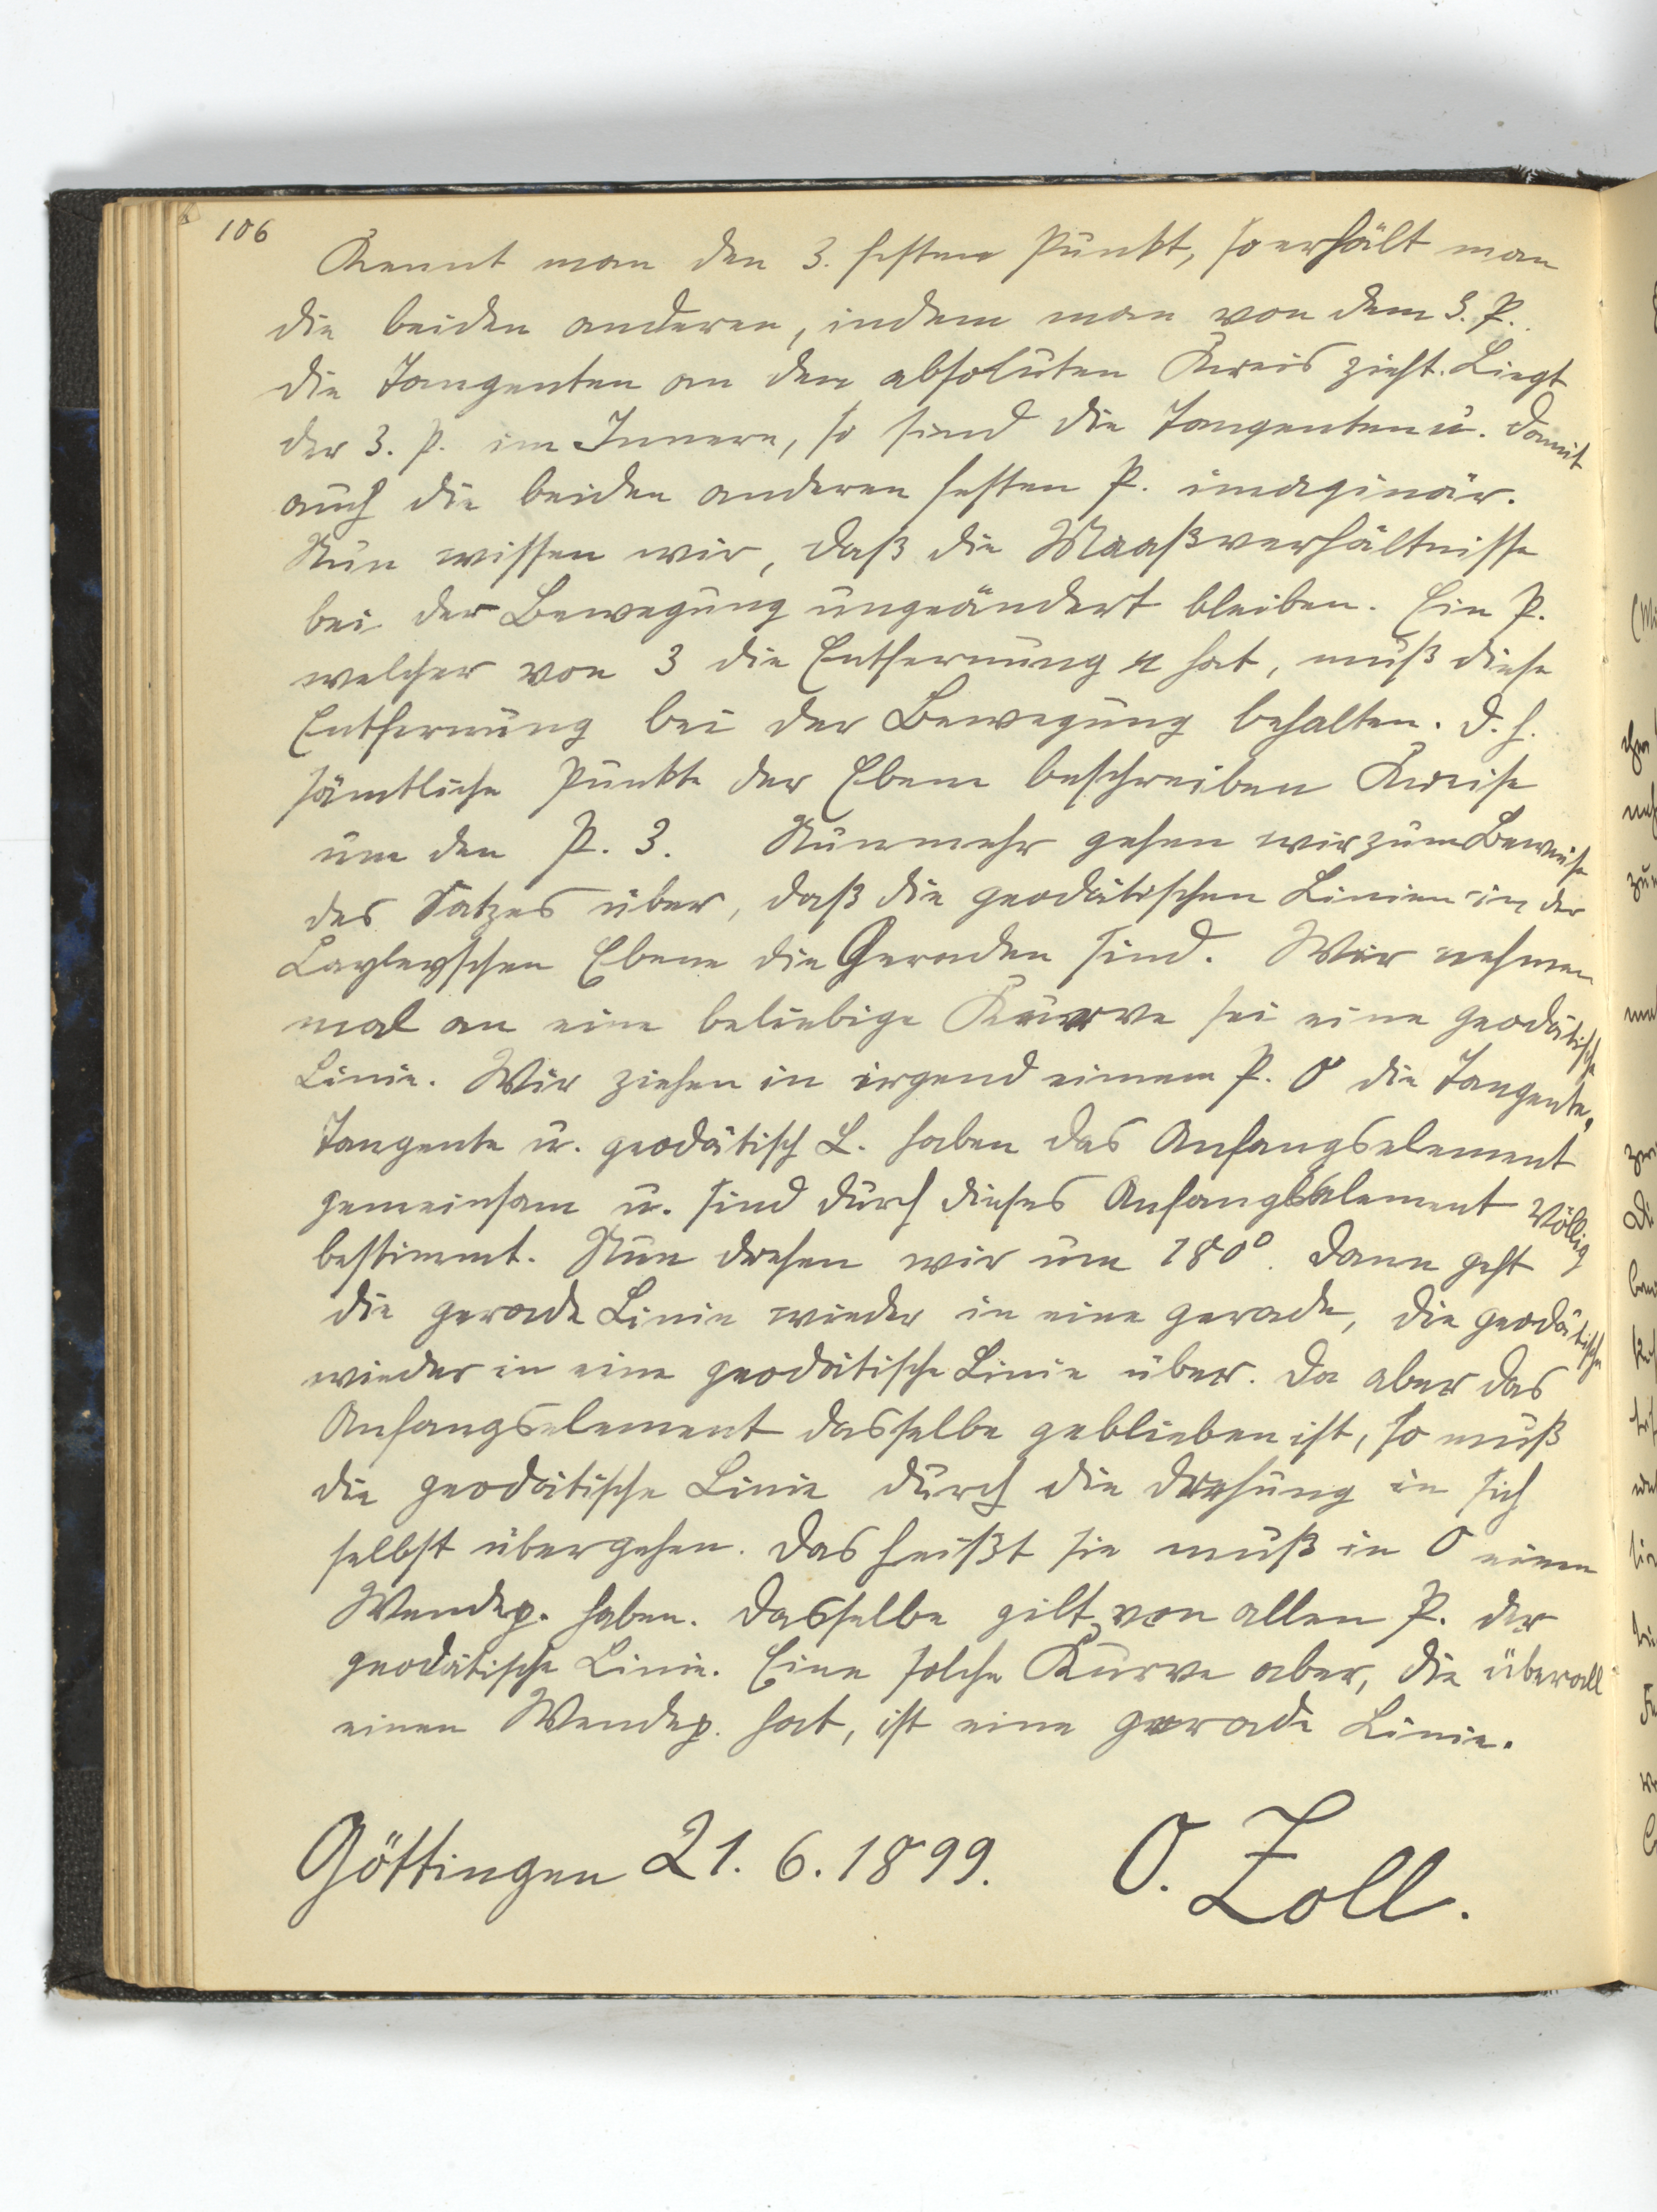 106
Kennt man den 3. festen Punkt, so erhält man
die beiden anderen, indem man von dem 3. P.
die Tangenten an den absoluten Kreis zieht. Liegt
der 3. P. im Innern, so sind die Tangenten u. damit
auch die beiden anderen festen P. imaginär.
Nun wissen wir, daß die Maaßverhältnisse
bei der Bewegung ungeändert bleiben. Ein P.
welcher von 3 die Entfernung r hat, muß diese
Entfernung bei der Bewegung behalten. d. h.
sämtliche Punkte der Ebene beschreiben Kreise
um den P. 3. Nunmehr gehen wir zum Beweise
des Satzes über, daß die geodätischen Linien in der
Cayleyschen Ebene die Geraden sind. Wir nehmen
mal an eine beliebige Kurve sei eine geodätische
Linie. Wir ziehen in irgend einem P. O die Tangente,
Tangente u. geodätisch L. haben das Anfangselement
gemeinsam u. sind durch dieses Anfangselement völlig
bestimmt. Nun drehen wir um 180°. Dann geht
die gerade Linie wieder in eine gerade, die geodätische
wieder in eine geodätische Linie über. Da aber das
Anfangselement dasselbe geblieben ist, so muß
die geodätische Linie durch die Drehung in sich
selbst übergehen. Das heißt sie muß in O einen
Wendep. haben. Dasselbe gilt von allen P. der
geodätische Linie. Eine solche Kurve aber, die überall
einen Wendep. hat, ist eine gerade Linie.
Göttingen 21. 6. 1899. O. Zoll.